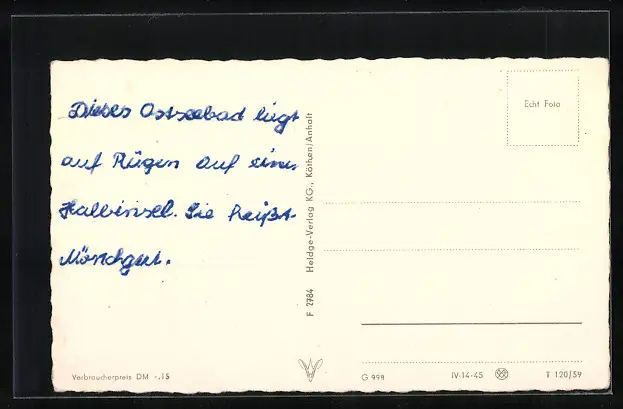 Dieses Ostseebad liegt
auf Rügen auf einer
Halbinsel. Sie heißt
Mönchgut.
F 2784 Heldge-Verlag KG., Köthen/Anhalt
Echt Foto
Verbraucherpreis DM -.15
G 998 IV-14-45 T 120/59